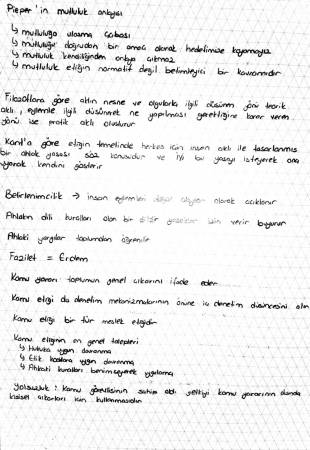 Pieper'in mutluluk anlayışı
↳ mutluluğa ulaşma çabası
↳ mutluluğu doğrudan bir amaç olarak hedefimize koyamayız
↳ mutluluk kendiliğinden ortaya çıkmaz
↳ mutluluk etiğin normatif değil belirleyici bir kavramıdır
Filozoflara göre aklın nesne ve olgularla ilgili düşünen yönü teorik
aklı, eylemle ilgili düşünerek ne yapılması gerektiğine karar veren
yönü ise pratik aklı oluşturur
Kant'a göre etiğin temelinde herkes için insan aklı ile tasarlanmış
bir ahlak yasası söz konusudur ve iyi bu yasayı isteyerek ona
uyarak kendini gösterir
Belirlenimcilik → insan eylemleri olarak açıklanır
Ahlakın dili kuralları olan bir için verir buyurur
Ahlaki yargılar toplumdan öğrenilir
Fazilet = Erdem
Kamu yararı toplumun genel çıkarını ifade eder
Kamu etiği da denetim mekanizmalarının önüne iç denetim düşüncesini alır
Kamu etiği bir tür meslek etiğidir
Kamu etiğinin en genel talepleri
↳ Hukuka uygun davranma
↳ Etik kodlara uygun davranma
↳ Ahlaki kuralları benimseyerek uygulama
Yolsuzluk: Kamu görevlisinin sahip oldğ yetkiyi kamu yararının dışında
kişisel çıkarları için kullanmasıdır